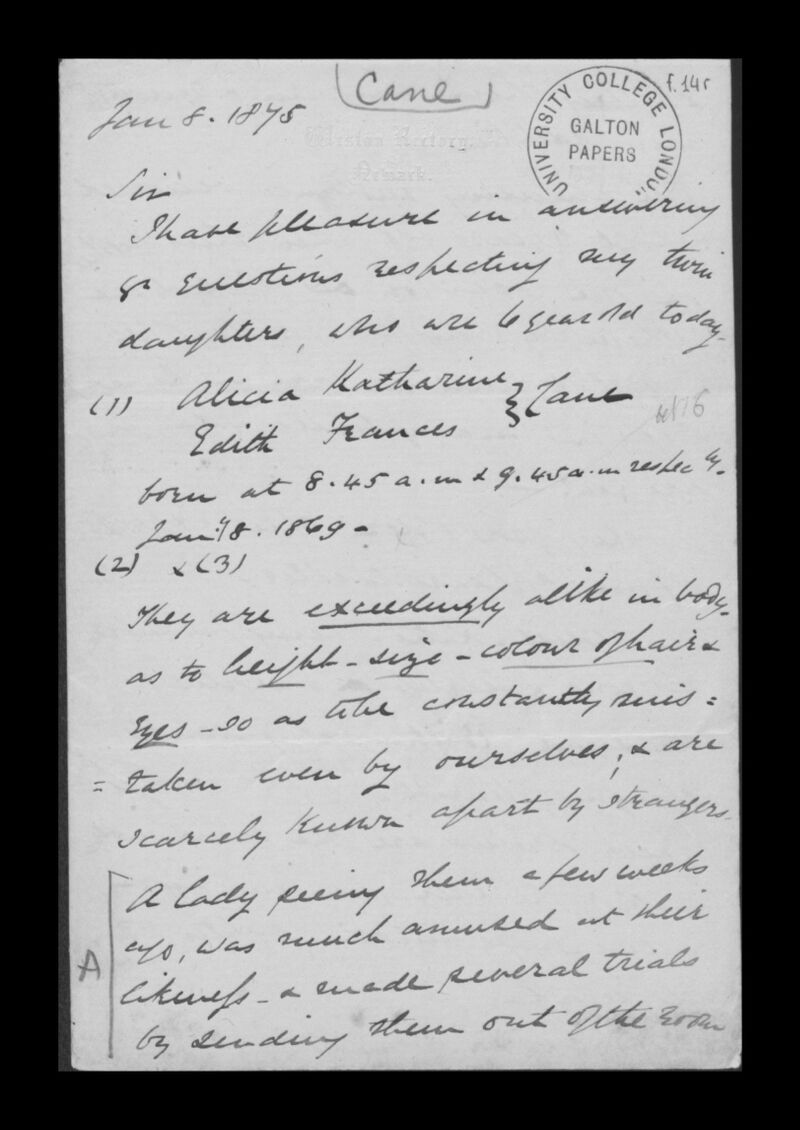 Cane
f.14r
UNIVERSITY COLLEGE LONDON
GALTON
PAPERS
Jan 8. 1875
Weston Rectory,
Newark.
Sir
I have pleasure in answering
yr questions respecting my twin
daughters, who are 6 year old today.
(1) Alicia Katharine } Cane
Edith Frances
born at 8.45 a.m & 9.45 a.m respecly.
Jany 8. 1869 -
(2) & (3)
They are exceedingly alike in body -
as to height - size - colour of hair &
Eyes - so as to be constantly mis=
=taken even by ourselves, & are
scarcely known apart by strangers.
A lady seeing them a few weeks
ago, was much amused at their
A
likeness - & made several trials
by sending them out of the room